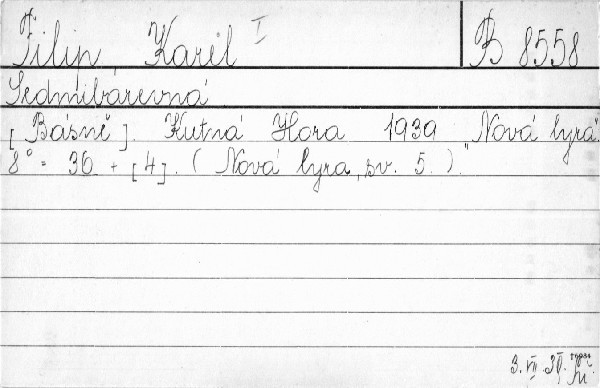 Filip Karel I B 8558
Sedmibarevná
[Básně]. Kutná Hora 1939 "Nová lyra".
8° = 36 + [4]. (Nová lyra, sv. 5.)
3. VII.